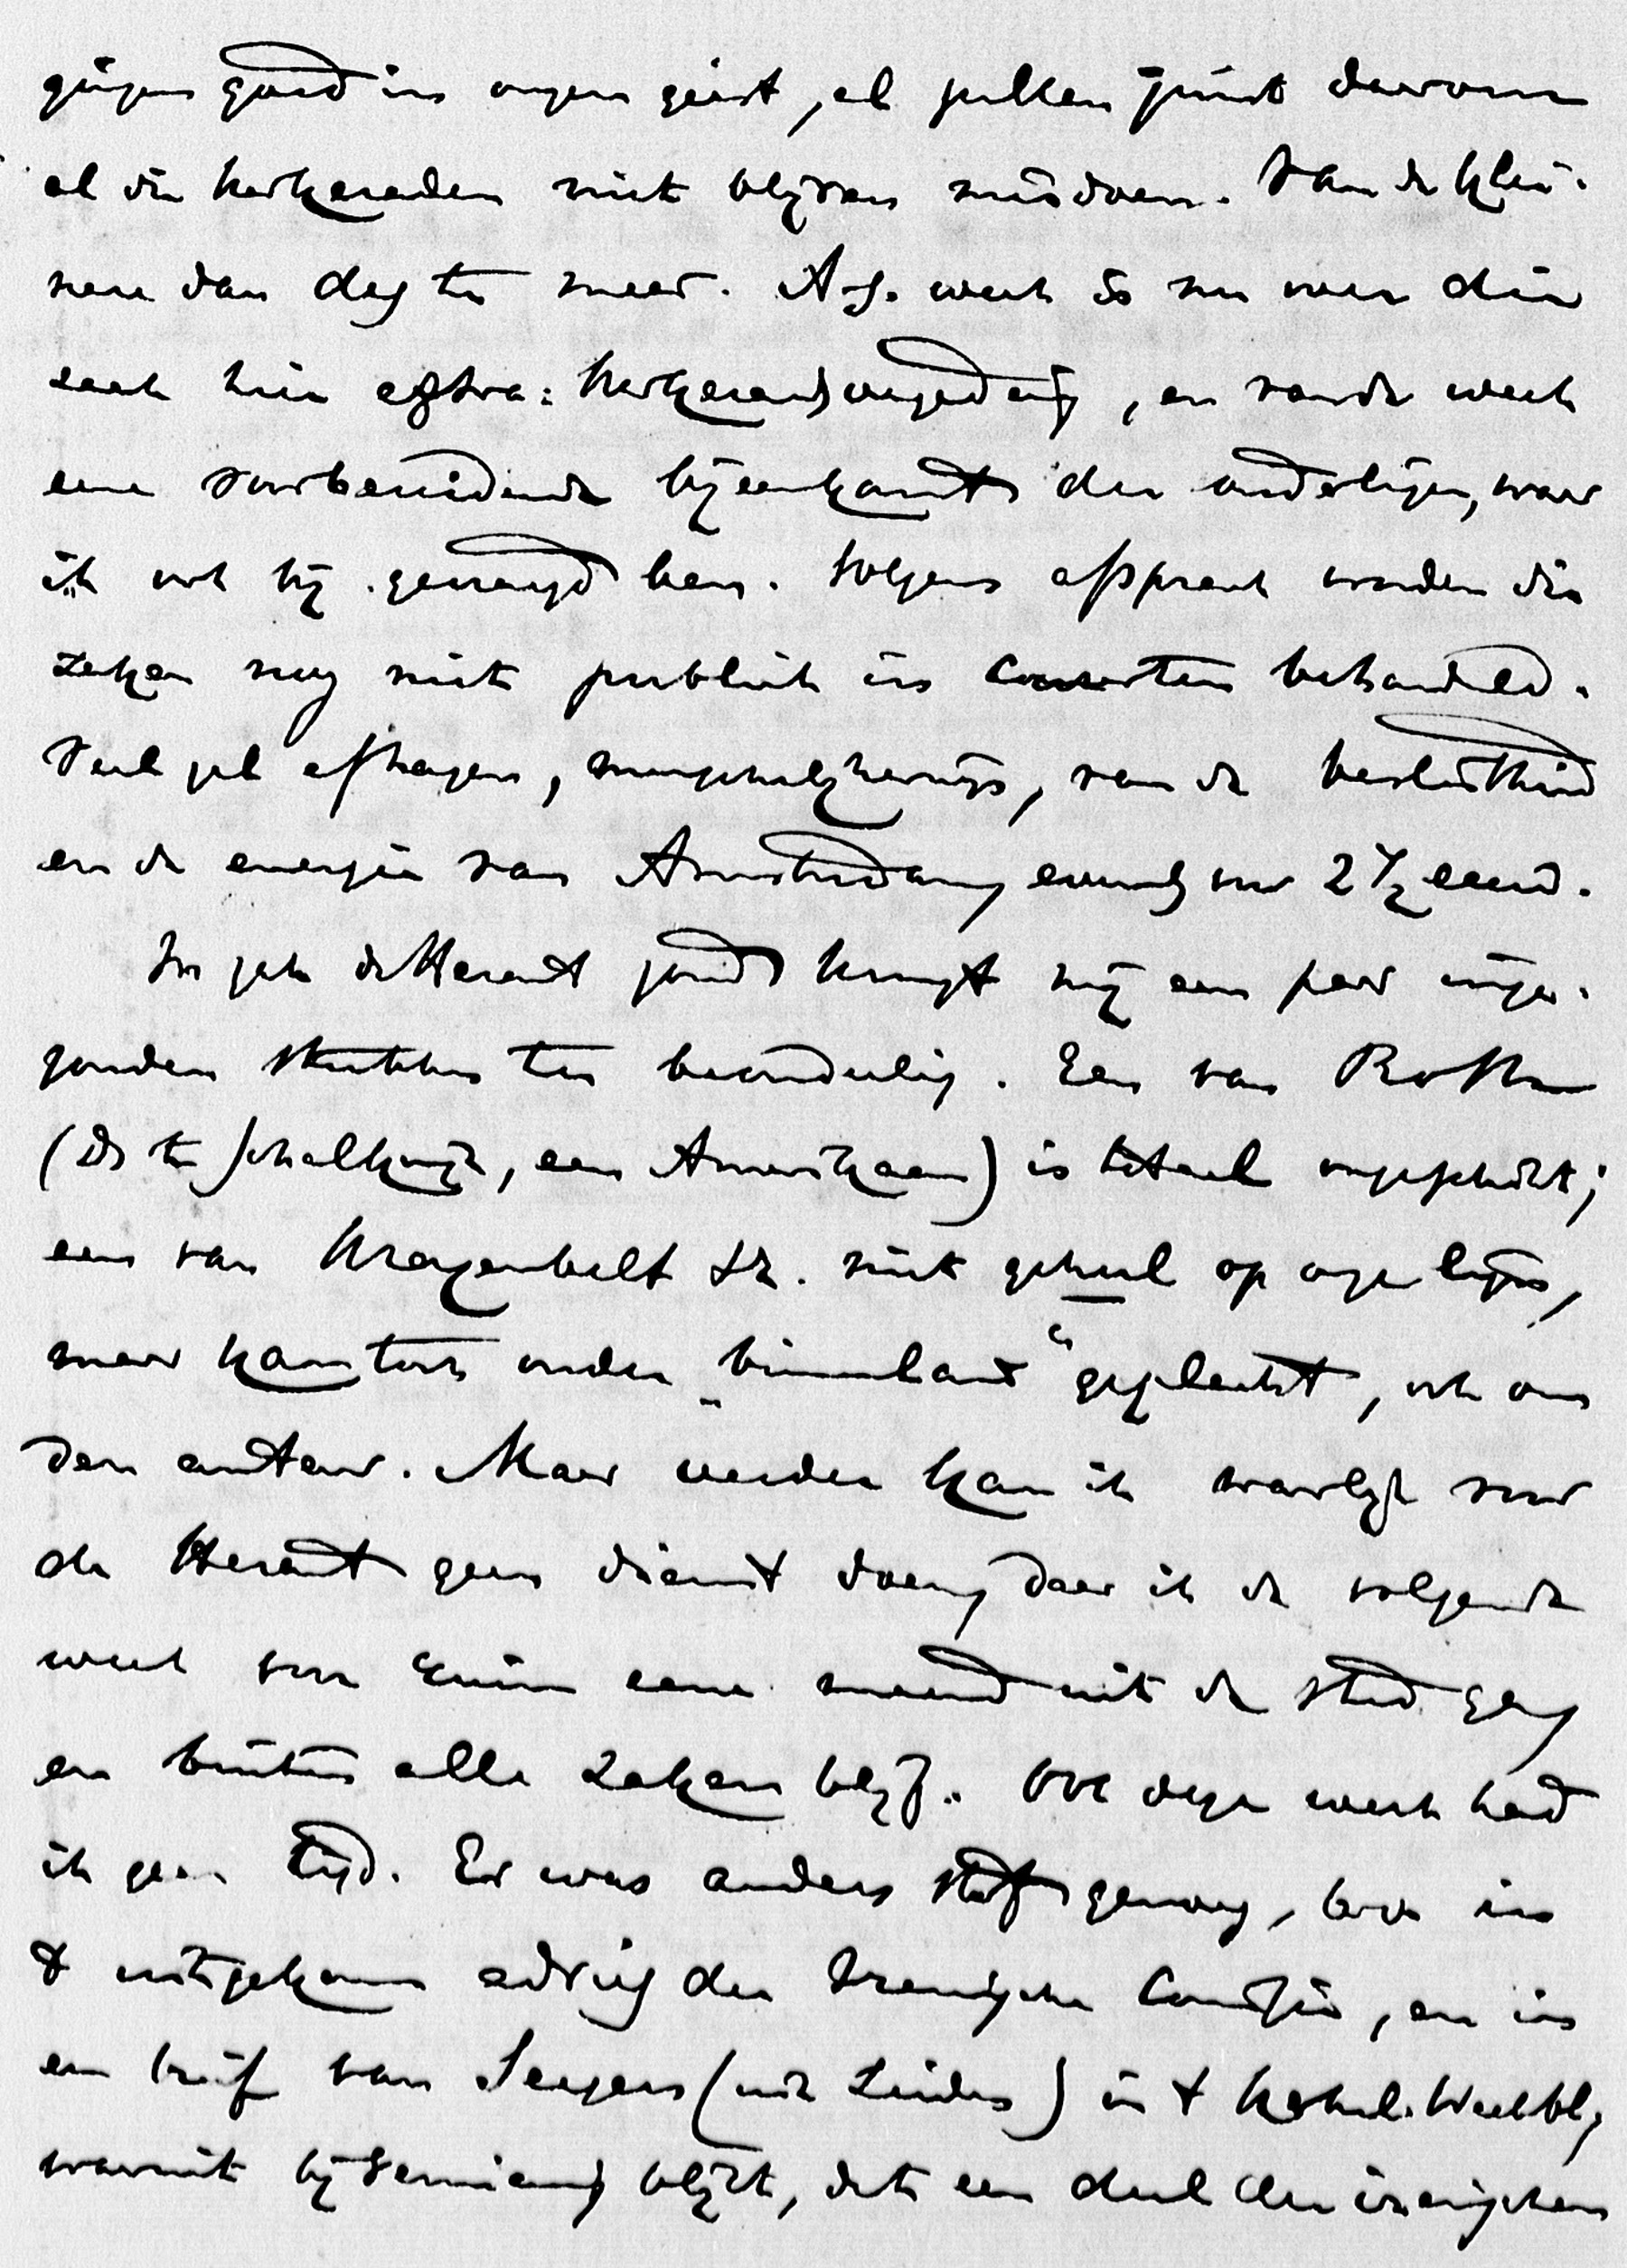 zijn goed in onzen geest, al zullen juist daarom
al die kerkeraden niet blijven meêdoen. Van de klei-
nere dan des te meer. A.s. week is nu over die
zaak hier extra-kerkeraadsvergadering, en van de week
eene voorbereidende bijeenkomst der ouderlingen, waar
ik ook bij gevraagd ben. Volgens afspraak worden die
zaken nog niet publiek in couranten behandeld.
Veel zal afhangen, menschelijkerwijs, van de beslistheid
en de energie van Amsterdam, evenals voor 2½ eeuw.
In zake de Heraut zond Kruyt mij een paar inge-
zonden stukken ter beoordeeling. Een van
(Ds te Schalkwijk, een Amerikaan) is totaal ongeschikt;
een van Krayenbelt Sr. niet geheel op onze lijn,
maar kan toch onder „binnenland" geplaatst, ook om
den auteur. Maar verder kan ik waarlijk voor
de Heraut geen dienst doen, daar ik de volgende
week voor ruim eene maand uit de stad ga,
en buiten alle zaken blijf. Ook deze week had
ik geen tijd. Er was anders stof genoeg, b.v. in
't uitgekomen advies der Irenische Comissie, en in
een brief van Segers (uit Leiden) in 't Kerkel. Weekbl,
waaruit bij vernieuwing blijkt, dat een deel der irenischen